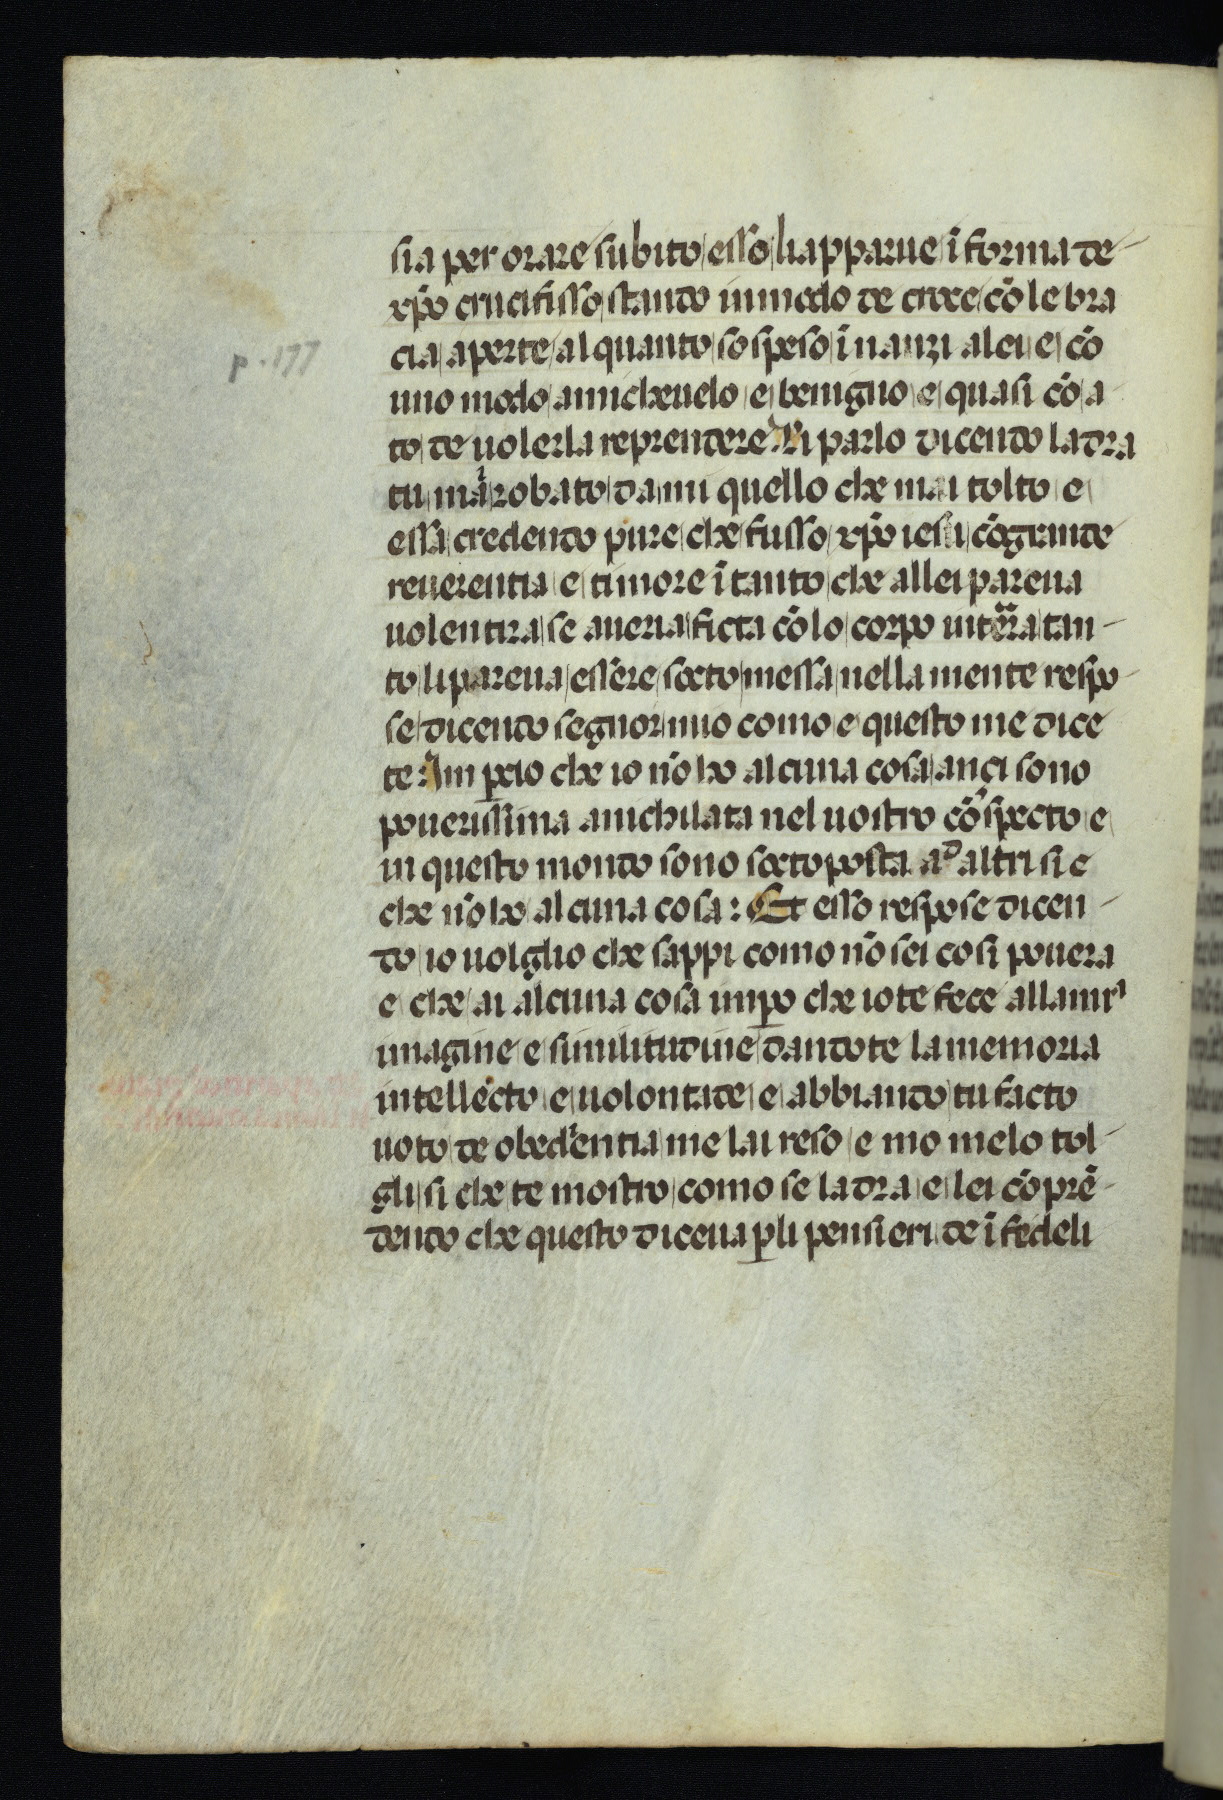 p. 177
sia per orare subito esso li apparue ī forma de
xp̄o crucifisso stando in modo de croce cō le bra
cia aperte al quanto sospeso īnanzi a lei e cō
uno modo amicheuelo e benigno e quasi cō a
to de uolerla reprendere Li parlo dicendo ladra
tu mai robato da mi quello che mai tolto e
essa credendo pure che fusso xp̄o iesu cō grande
reuerentia e timore ī tanto che allei pareua
uolentira se aueria ficta cō lo corpo in terra tan
to li pareua essere socto messa nella mente respo
se dicendo segnor mio como e questo me dice
te Imperio che io nō ho alcuna cosa anci sono
pouerissima anichilata nel uostro cōspecto e
in questo mondo sono soctoposta ad altri si e
che nō ho alcuna cosa : Et esso respose dicen
do io uolglio che sappi como nō sei cosi pouera
e che ai alcuna cosa imp̄o che io te fece alla mia
imagine e similitudine dandote la memoria
intellecto e uolontade e abbiando tu facto
uoto de obedientia me lai reso e mo melo tol
gli si che te mostro como se ladra e lei cōprē
dendo che questo diceua p̱ li pensieri de īfedeli